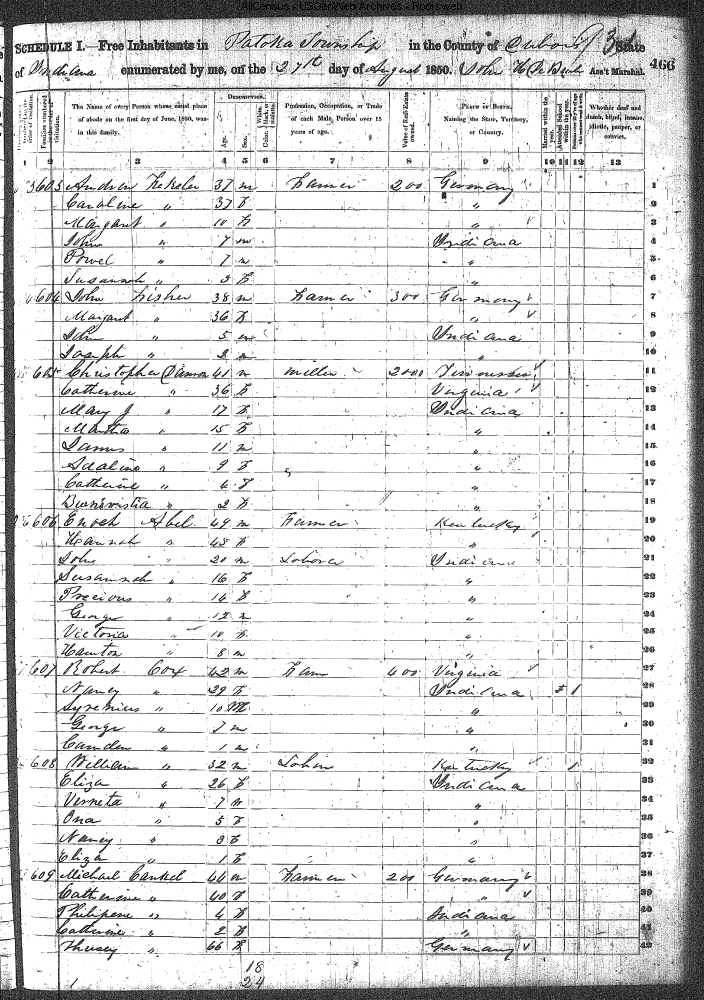 AllCensus - USGenWeb Archives - Rootsweb
SCHEDULE I.—Free Inhabitants in Patoka Township in the County of Dubois State
of Indiana enumerated by me, on the 27th day of August 1850. John Ass't Marshal. 466
The Name of every Person whose usual place of abode on the first day of June, 1850, was in this family.
DESCRIPTION.
Age.
Sex.
Color,
Profession, Occupation, or Trade of each Male Person over 15 years of age.
Value of Real Estate owned.
PLACE OF BIRTH. Naming the State, Territory, or Country.
Married within the year.
Whether deaf and dumb, blind, insane, idiotic, pauper, or convict.
1 2 3 4 5 6 7 8 9 10 11 12 13
603 Andrew 37 m Farmer 200 Germany 1
Caroline " 37 f " 2
Margaret " 10 f " 3
John " 7 m Indiana 4
Powel " 7 m " 5
Susannah " 3 f " 6
604 John Fisher 38 m Farmer 300 Germany 7
Margaret " 36 f " 8
John " 5 m Indiana 9
Joseph " 2 m " 10
605 Christopher 41 m Miller 2000 11
Catherine " 36 f Virginia 12
Mary J " 17 f Indiana 13
Martha " 15 f " 14
James " 11 m " 15
Adaline " 9 f " 16
Catherine " 4 f " 17
" 2 f " 18
606 Enoch Abel 49 m Farmer Kentucky 19
Hannah " 45 f " 20
John " 20 m Laborer Indiana 21
Susannah " 16 f " 22
Precious " 14 f " 23
George " 12 m " 24
Victoria " 10 f " 25
" 8 m " 26
607 Robert Cox 42 m Farm 400 Virginia 27
Nancy " 29 f Indiana 1 28
" 10 M " 29
George " 7 m " 30
Camden " 1 m " 31
608 William " 32 m Kentucky 1 32
Eliza " 26 f Indiana 33
" 7 " 34
Ona " 5 f " 35
Nancy " 3 f " 36
Eliza " 1 f " 37
609 Michael 44 m Farmer 200 Germany 38
Catherine " 40 f " 39
" 4 f Indiana 40
Catherine " 2 f " 41
" 66 f Germany 42
18
24